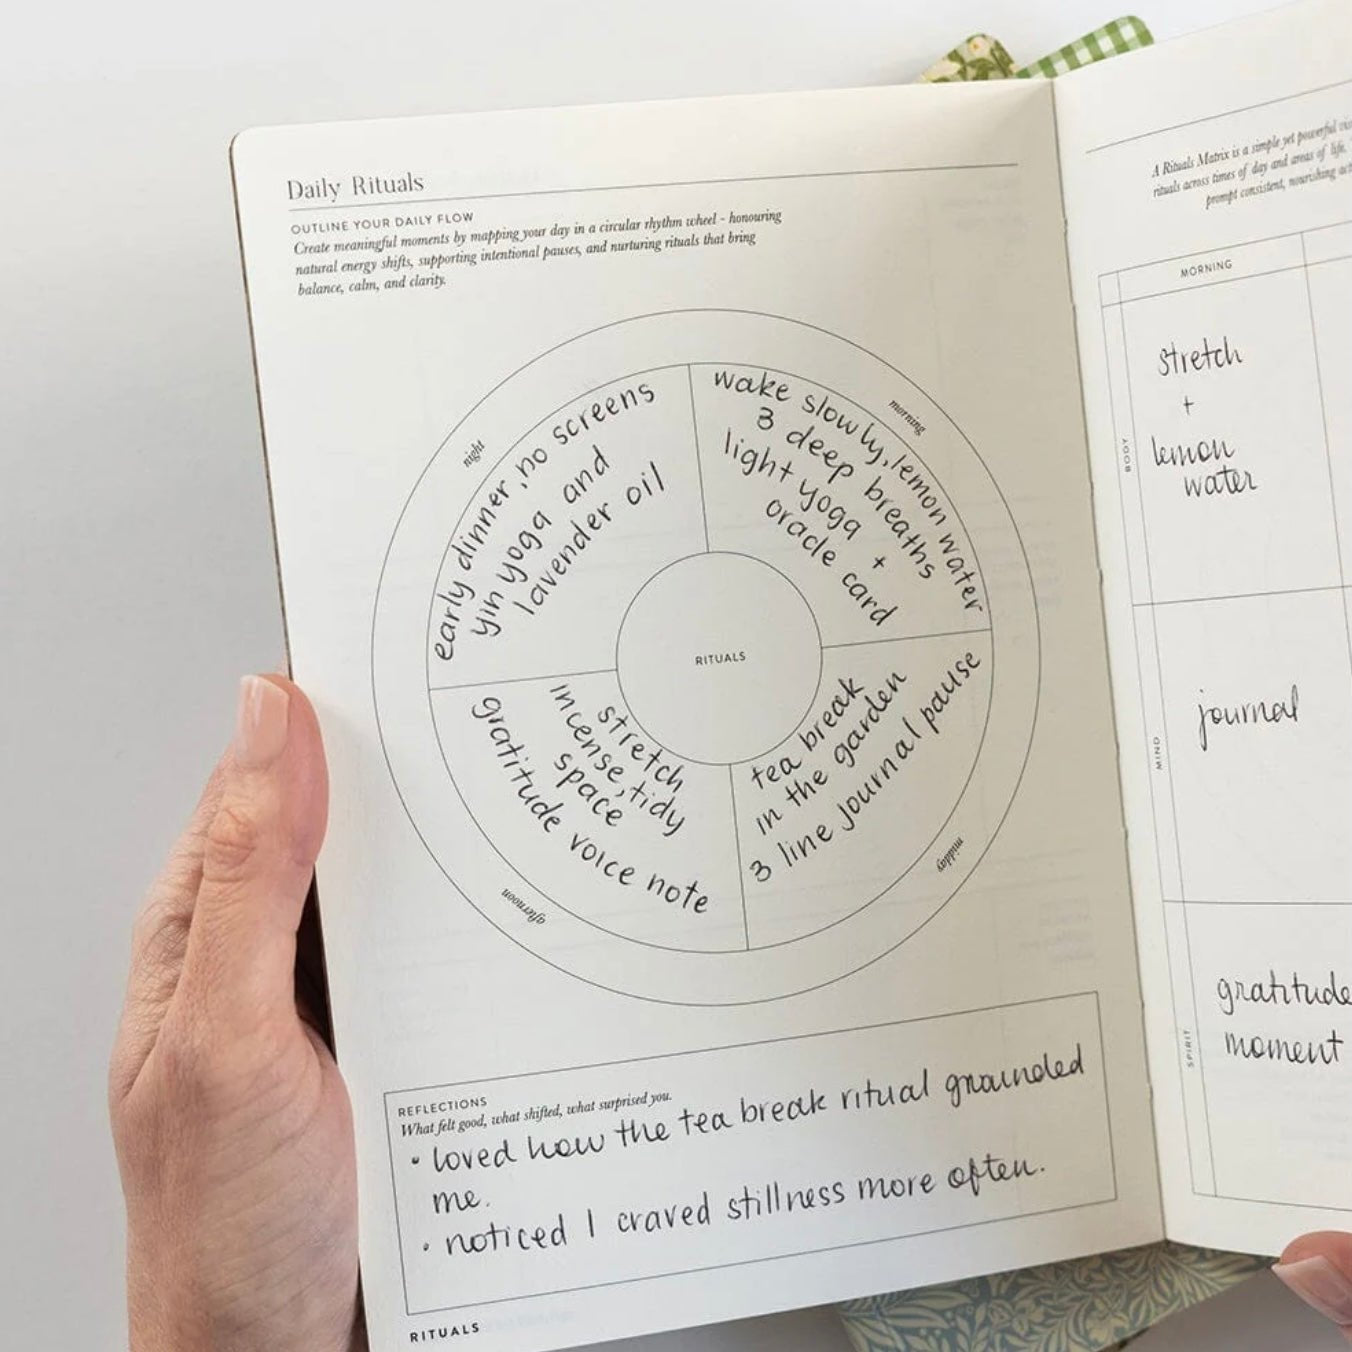 Daily Rituals
OUTLINE YOUR DAILY FLOW
Create meaningful moments by mapping your day in a circular rhythm wheel - honouring
natural energy shifts, supporting intentional pauses, and nurturing rituals that bring
balance, calm, and clarity.
night
early dinner, no screens
yin yoga and
lavender oil
morning
wake slowly, lemon water
3 deep breaths
light yoga +
oracle card
RITUALS
stretch
incense, tidy
space
gratitude voice note
afternoon
tea break
in the garden
3 line journal pause
midday
REFLECTIONS
What felt good, what shifted, what surprised you.
• loved how the tea break ritual grounded
me.
• noticed I craved stillness more often.
RITUALS
A Rituals Matrix is a simple yet powerful
rituals across times of day and areas of life.
prompt consistent, nourishing
MORNING
BODY
stretch
+
lemon
water
MIND
journal
SPIRIT
gratitude
moment